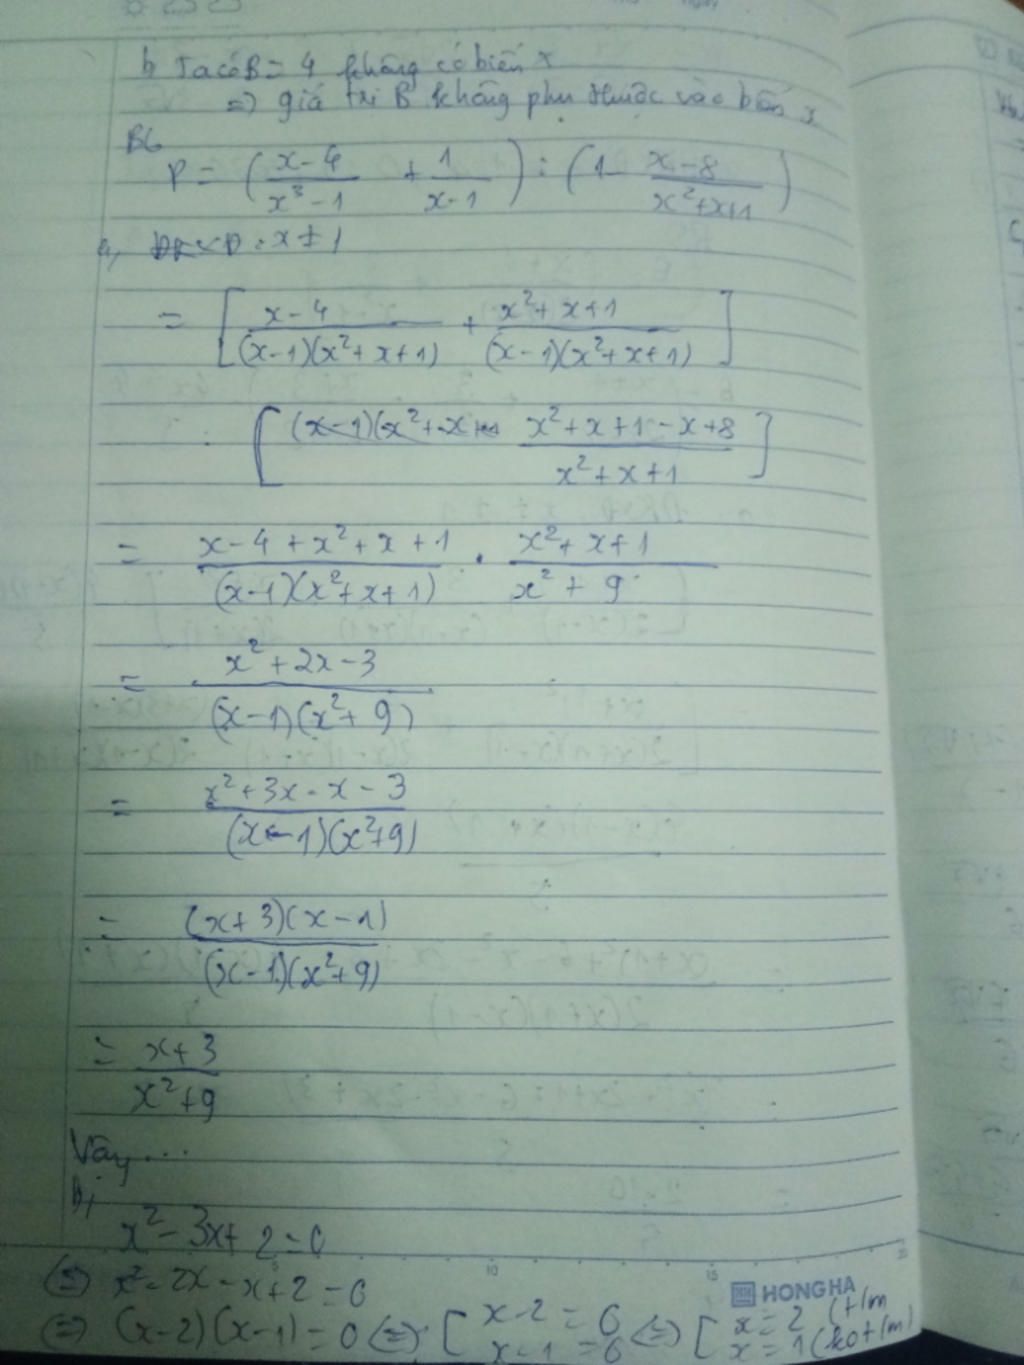 b Ta có B = 4 không có biến x
=> giá trị B không phụ thuộc vào biến x
B6
P = ( (x-4)/(x³-1) + 1/(x-1) ) : ( 1 - (x-8)/(x²+x+1) )
a, ĐKXĐ: x ≠ 1
= [ (x-4)/((x-1)(x²+x+1)) + (x²+x+1)/((x-1)(x²+x+1)) ]
: [ (x²+x+1-x+8)/(x²+x+1) ]
= (x-4+x²+x+1)/((x-1)(x²+x+1)) . (x²+x+1)/(x²+9)
= (x²+2x-3)/((x-1)(x²+9))
= (x²+3x-x-3)/((x-1)(x²+9))
= ((x+3)(x-1))/((x-1)(x²+9))
= (x+3)/(x²+9)
Vậy...
b,
x²-3x+2=0
<=> x²-2x-x+2=0
<=> (x-2)(x-1)=0 <=> [ x-2=0 <=> [ x=2 (t/m
x-1=0 x=1 (ko t/m)
10 15 20
HONG HA